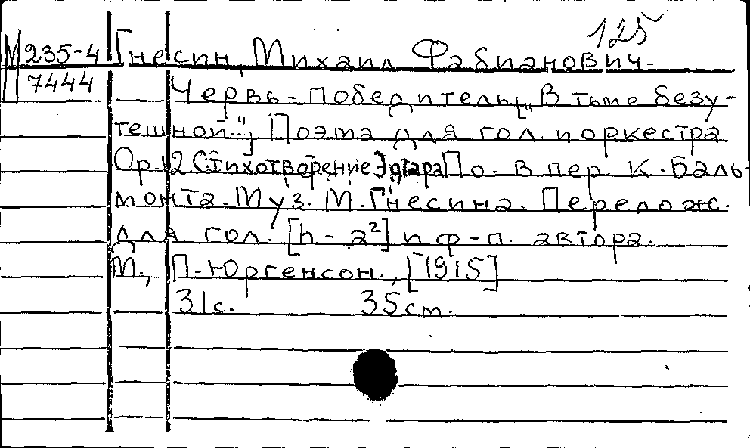 125
М 235-4 Гнесин, Михаил Фабианович.
7444 Червь-победитель, ["В тьме безу-
тешной..."] Поэма для гол. и оркестра
Op. 12 Стихотворение Эдгара По. в пер. К. Баль-
монта. Муз. М. Гнесина. Перелож.
для гол. [h - a²] и ф-п. автора.
М., П. Юргенсон., [1915]
31с. 35 cm.